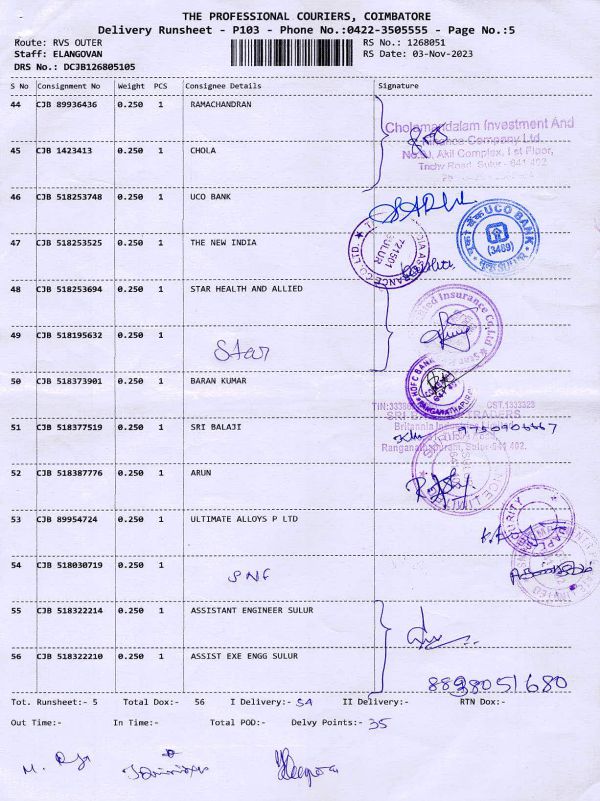 THE PROFESSIONAL COURIERS, COIMBATORE
Delivery Runsheet - P103 - Phone No.:0422-3505555 - Page No.:5
Route: RVS OUTER RS No.: 1268051
Staff: ELANGOVAN RS Date: 03-Nov-2023
DRS No.: DCJB126805105
S No Consignment No Weight PCS Consignee Details Signature
44 CJB 89936436 0.250 1 RAMACHANDRAN
Cholamandalam Investment And
Finance Company Ltd.
45 CJB 1423413 0.250 1 CHOLA
Akil Complex, I st Floor,
Trichy Road, Sulur - 641 402
46 CJB 518253748 0.250 1 UCO BANK
UCO BANK
(3489)
47 CJB 518253525 0.250 1 THE NEW INDIA
721501
SULUR
48 CJB 518253694 0.250 1 STAR HEALTH AND ALLIED
Allied Insurance Co. Ltd
49 CJB 518195632 0.250 1
Star
50 CJB 518373901 0.250 1 BARAN KUMAR
HDFC BANK
RANGANATHAPURAM
CST.1333323
51 CJB 518377519 0.250 1 SRI BALAJI
SRI TRADERS
Britannia
Sulur-641 402.
52 CJB 518387776 0.250 1 ARUN
53 CJB 89954724 0.250 1 ULTIMATE ALLOYS P LTD
SECURITY
54 CJB 518030719 0.250 1
SNF
55 CJB 518322214 0.250 1 ASSISTANT ENGINEER SULUR
56 CJB 518322210 0.250 1 ASSIST EXE ENGG SULUR
8898051680
Tot. Runsheet:- 5 Total Dox:- 56 I Delivery:- 54 II Delivery:- RTN Dox:-
Out Time:- In Time:- Total POD:- Delvy Points:- 35